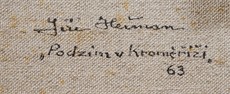 Jiří Heřman
„Podzim v Kroměříži„
63